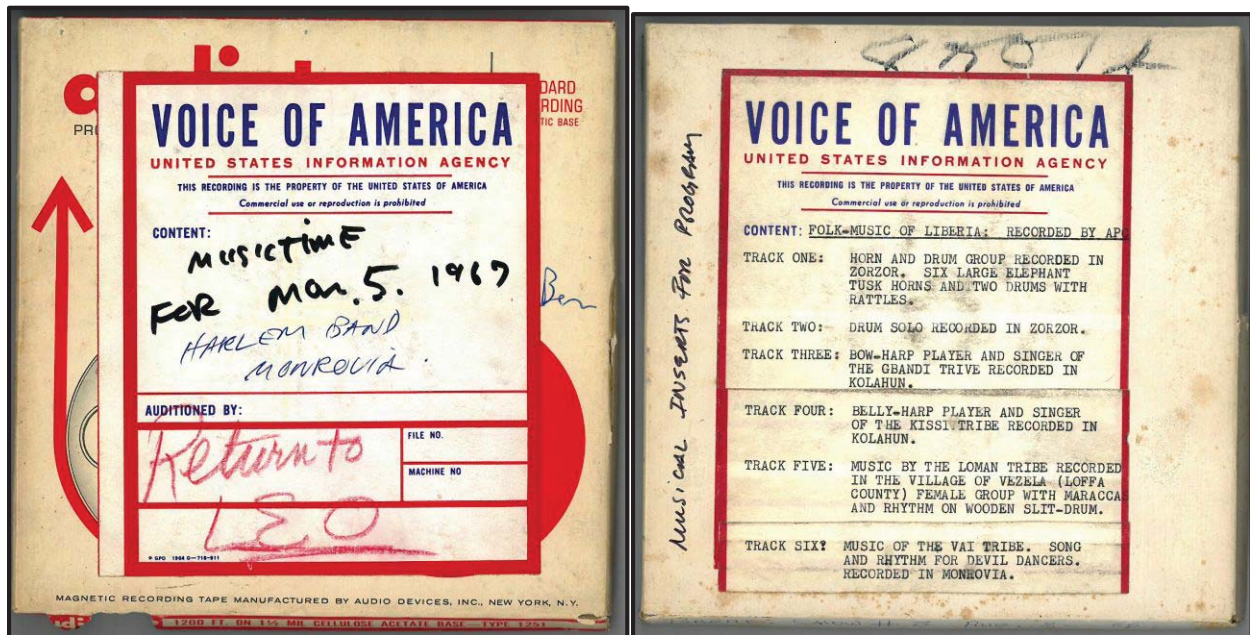 PR
DARD
RDING
TIC BASE
VOICE OF AMERICA
UNITED STATES INFORMATION AGENCY
THIS RECORDING IS THE PROPERTY OF THE UNITED STATES OF AMERICA
Commercial use or reproduction is prohibited
CONTENT:
MUSICTIME
FOR Mar. 5. 1967
Ben
HARLEM BAND
MONROVIA.
AUDITIONED BY:
FILE NO.
MACHINE NO
Return to
LEO
MAGNETIC RECORDING TAPE MANUFACTURED BY AUDIO DEVICES, INC., NEW YORK, N.Y.
1200 FT. ON 1½ MIL CELLULOSE ACETATE BASE—TYPE 1251
MUSICAL INSERTS FOR PROGRAM
VOICE OF AMERICA
UNITED STATES INFORMATION AGENCY
THIS RECORDING IS THE PROPERTY OF THE UNITED STATES OF AMERICA
Commercial use or reproduction is prohibited
CONTENT: FOLK-MUSIC OF LIBERIA: RECORDED BY APC
TRACK ONE: HORN AND DRUM GROUP RECORDED IN
ZORZOR. SIX LARGE ELEPHANT
TUSK HORNS AND TWO DRUMS WITH
RATTLES.
TRACK TWO: DRUM SOLO RECORDED IN ZORZOR.
TRACK THREE: BOW-HARP PLAYER AND SINGER OF
THE GBANDI TRIVE RECORDED IN
KOLAHUN.
TRACK FOUR: BELLY-HARP PLAYER AND SINGER
OF THE KISSI TRIBE RECORDED IN
KOLAHUN.
TRACK FIVE: MUSIC BY THE LOMAN TRIBE RECORDED
IN THE VILLAGE OF VEZELA (LOFFA
COUNTY) FEMALE GROUP WITH MARACCAS
AND RHYTHM ON WOODEN SLIT-DRUM.
TRACK SIX? MUSIC OF THE VAI TRIBE. SONG
AND RHYTHM FOR DEVIL DANCERS.
RECORDED IN MONROVIA.